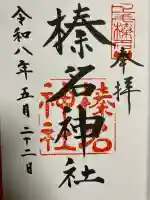 奉拝
榛名神社
榛名神社
令和八年五月二十二日